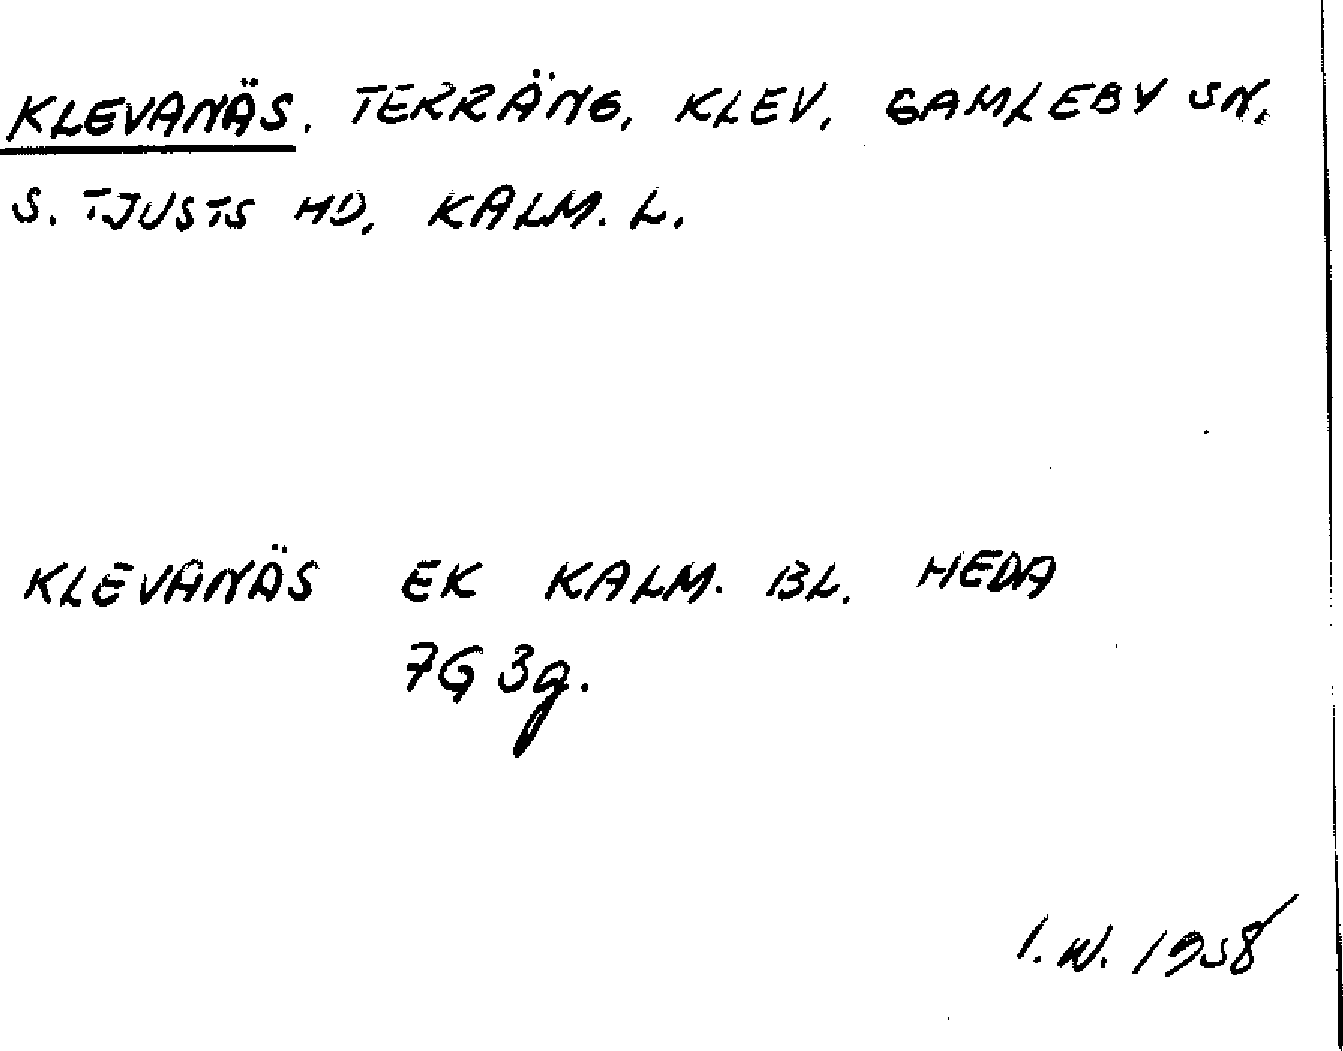 KLEVANÄS. TERRÄNG, KLEV, GAMLEBY SN,
S. TJUSTS HD, KALM. L.
KLEVANÄS EK KALM. BL. HEDA
7G 3g.
I. W. 1958